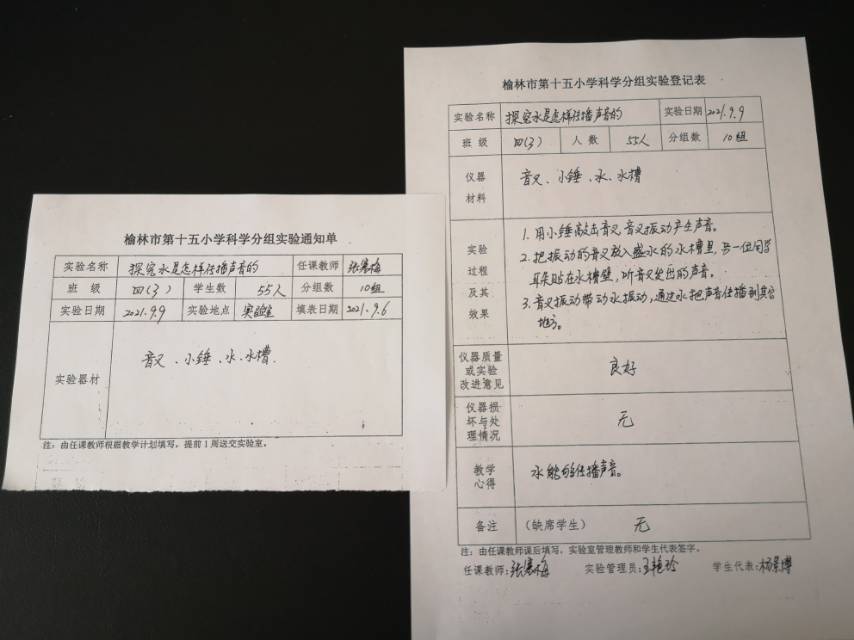 榆林市第十五小学科学分组实验通知单
实验名称 探究水是怎样传播声音的 任课教师 张寒梅
班级 四(3) 学生数 55人 分组数 10组
实验日期 2021.9.9 实验地点 实验室 填表日期 2021.9.6
实验器材 音叉、小锤、水、水槽.
注：由任课教师根据教学计划填写，提前1周送交实验室。
榆林市第十五小学科学分组实验登记表
实验名称 探究水是怎样传播声音的 实验日期 2021.9.9
班级 四(3) 人数 55人 分组数 10组
仪器材料 音叉、小锤、水、水槽
实验过程及其效果
1. 用小锤敲击音叉,音叉振动产生声音。
2. 把振动的音叉放入盛水的水槽里,另一位同学
耳朵贴在水槽壁,听音叉发出的声音。
3. 音叉振动带动水振动,通过水把声音传播到其它
地方。
仪器质量或实验改进意见 良好
仪器损坏与处理情况 无
教学心得 水能够传播声音。
备注 （缺席学生） 无
注：由任课教师课后填写，实验室管理教师和学生代表签字。
任课教师:张寒梅 实验管理员:王艳玲 学生代表:杨景博